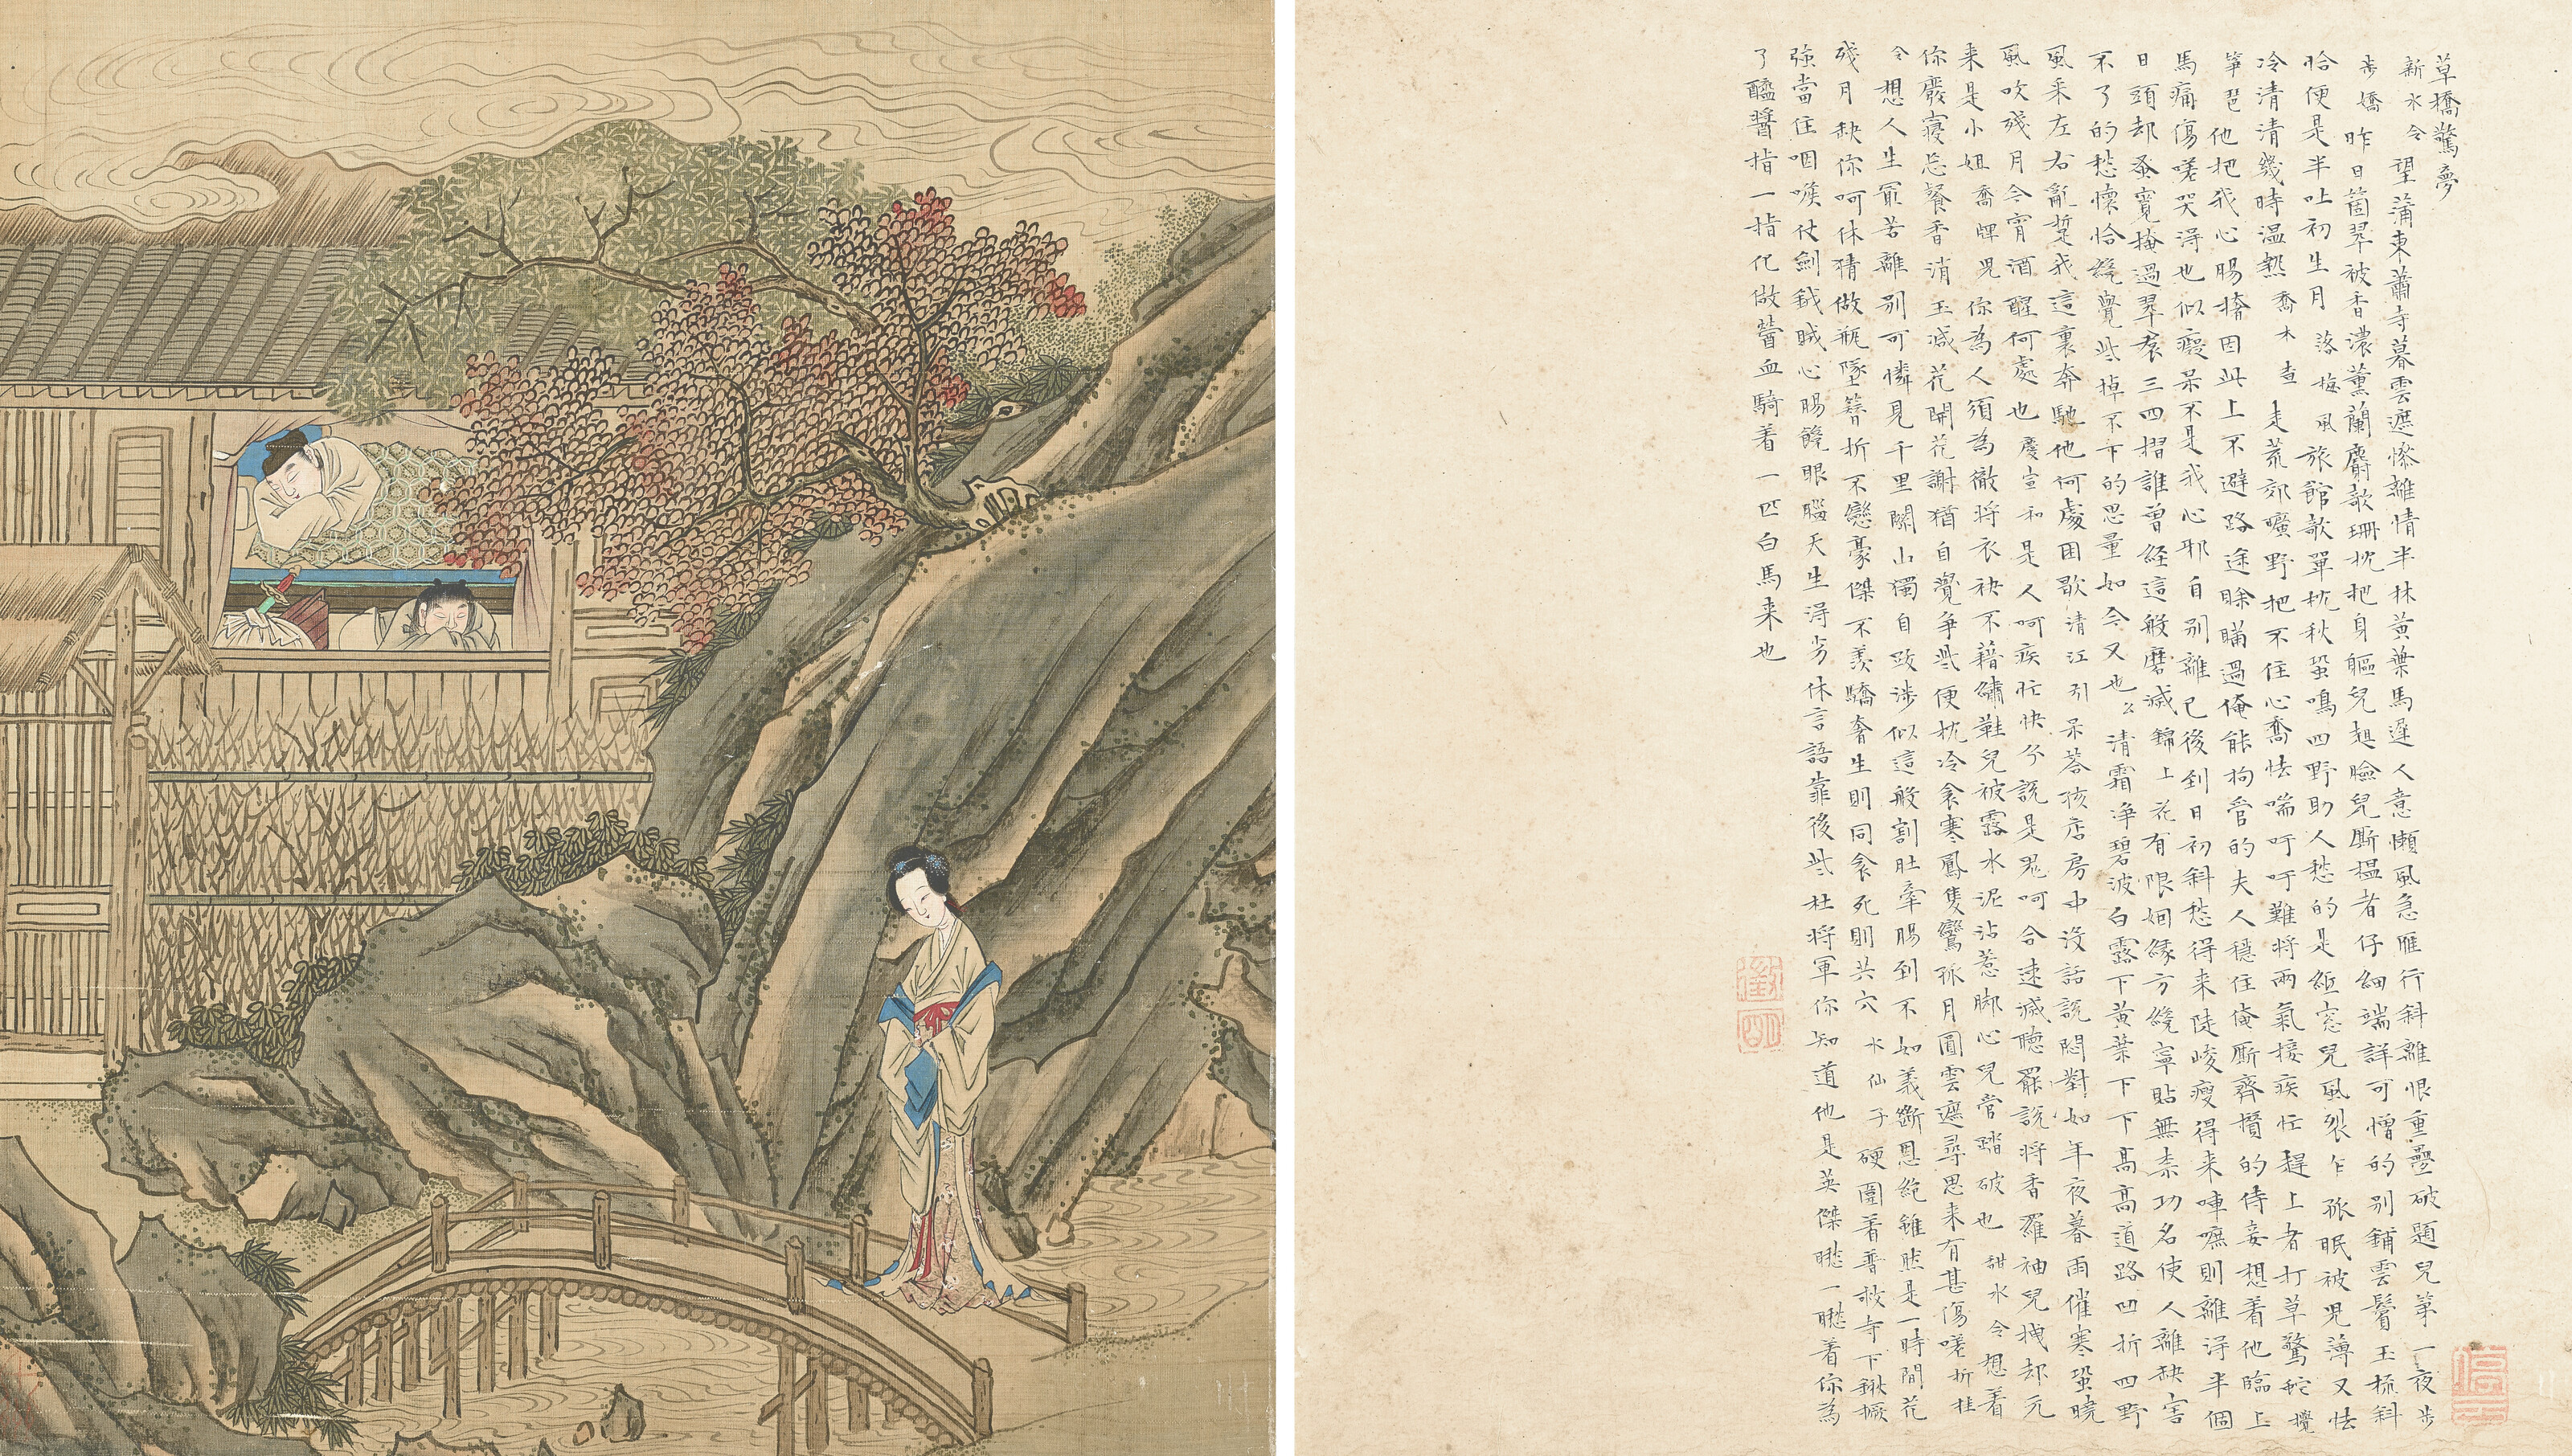 草橋驚夢
新水令 望蒲東蕭寺暮雲遮慘離情半林黃葉馬遲人意懶風急雁行斜離恨重疊破題兒第一夜 步
步嬌 昨日箇翠被香濃薰蘭麝欹珊枕把身軀兒趄臉兒廝揾者仔細端詳可憎的別鋪雲鬢玉梳斜
恰便是半吐初生月 落梅風 旅館欹單枕秋蛩鳴四野助人愁的是紙窓兒風裂乍孤眠被兒薄又怯
冷清清幾時温熱 喬木查 走荒郊曠野把不住心喬怯喘吁吁難將兩氣接疾忙趕上者打草驚蛇 攪
箏琶 他把我心腸搽因此上不避路途賒瞞過俺能拘管的夫人穩住俺廝齊攢的侍妾想着他臨上
馬痛傷嗟哭淂也似癡呆不是我心邪自別離已後到日初斜愁得来陡峻瘦得来唓嗻則離淂半個
日頭却蚤寬掩過翠裙三四摺誰曾經這般磨滅 錦上花 有限姻緣方纔寧貼無柰功名使人離缺害
不了的愁懷恰纔覺些掉不下的思量如今又也 么 清霜净碧波白露下黃葉下下高高道路凹折四野
風来左右亂踅我這裏奔馳他何處困歇 清江引 呆荅孩店房中沒話說悶對如年夜暮雨催寒蛩曉
風吹殘月今宵酒醒何處也 慶宣和 是人呵疾忙快分說是鬼呵合速滅聽罷說將香羅袖兒拽却元
来是小姐 喬牌兒 你為人須為徹將衣袂不藉繡鞋兒被露水泥沾惹脚心兒管踏破也 甜水令 想着
你廢寢忘餐香消玉減花開花謝猶自覺争些便枕冷衾寒鳳隻鸞孤月圓雲遮尋思来有甚傷嗟 折桂
令 想人生最苦離別可憐見千里關山獨自跋涉似這般割肚牽腸到不如義斷恩絶雖然是一時間花
殘月缺你呵休猜做瓶墜簪折不戀豪傑不羨驕奢生則同衾死則共穴 水仙子 硬圍着普救寺下鍬撅
強當住咽喉仗劍鉞賊心腸饞眼腦天生淂劣休言語靠後些杜將軍你知道他是英傑瞧一瞧着你為
了醯醬指一指化做膋血騎着一匹白馬来也
徵
明
停雲